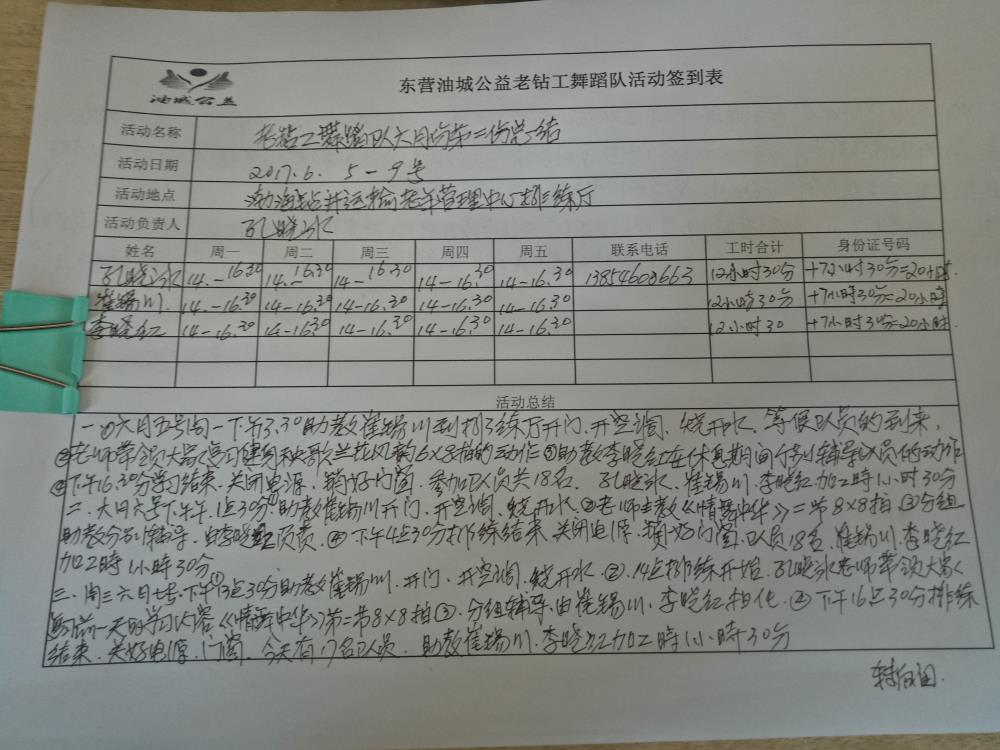 油城公益
东营油城公益老钻工舞蹈队活动签到表
活动名称 老钻工舞蹈队六月份第二份总结
活动日期 2017.6. 5-9号
活动地点 渤海钻井运输老年管理中心排练厅
活动负责人 孔晓冰
姓名 周一 周二 周三 周四 周五 联系电话 工时合计 身份证号码
孔晓冰 14.-16.30 14.-16.30 14-16.30 14-16.30 14-16.30 13854603663 12小时30分 +7小时30分=20小时.
崔锡川. 14-16.30 14-16.30 14-16.30 14-16.30 14-16.30 12小时30分 +7小时30分=20小时
李晓红 14-16.30 14-16.30 14-16.30 14-16.30 14-16.30 12小时30 +7小时30分=20小时.
活动总结
一.①六月五号周一下午3.30助教崔锡川到排练厅开门.开空调.烧开水.等候队员的到来,
②老师带领大家复习健身秧歌兰花风韵6×8拍的动作③助教李晓红在休息期间个别辅导队员的动作
④下午16.30分学习结束.关闭电源.锁好门窗.参加队员共18名.孔晓冰.崔锡川.李晓红加2時1小时30分
二.六月六号下午.1点30分①助教崔锡川开门.开空调.烧开水②老师主教《情舞中华》二节8×8拍③分组
助教分别辅导.由李晓红负责.④下午4点30分排练结束.关闭电源.锁好门窗.队员18名.崔锡川.李晓红
加工時1小時30分
三.周三六月七号.下午①1点30分助教崔锡川.开门.开空调.烧开水.②.14点排练开始.孔晓冰老师带领大家
前一天的学习内容《情舞中华》第二节8×8拍③.分组辅导由崔锡川.李晓红担任.④下午16点30分排练
结束.关好电源.门窗.今天有17名队员.助教崔锡川.李晓红加工時1小時30分
转后面.